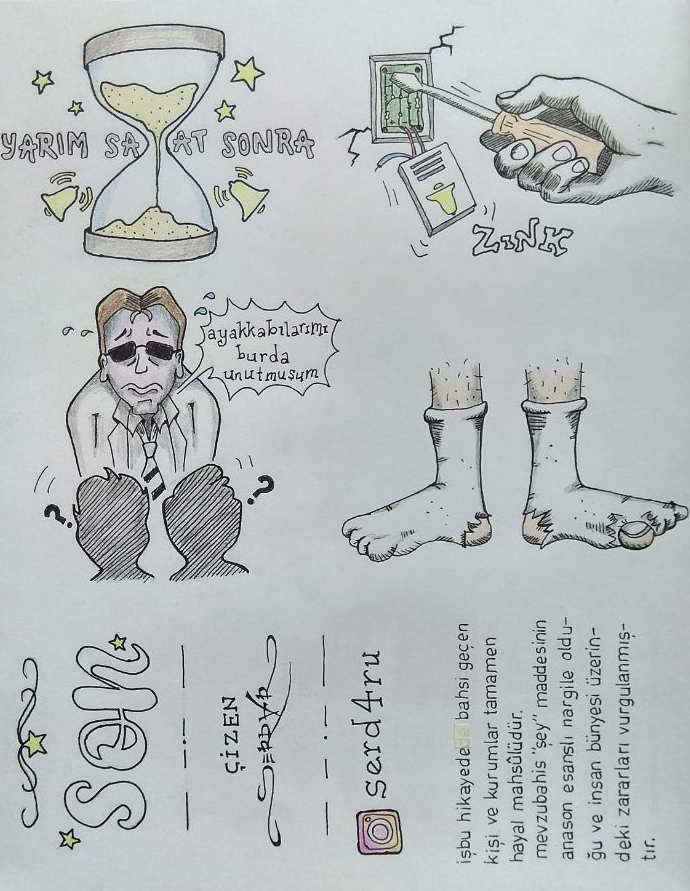 YARIM SAAT SONRA
ZINK
ayakkabılarımı
burda
unutmuşum
?
?
SON
ÇİZEN
SERDAR
serd4ru
işbu hikayede bahsi geçen
kişi ve kurumlar tamamen
hayal mahsûlüdür.
mevzubahis "şey" maddesinin
anason esanslı nargile oldu-
ğu ve insan bünyesi üzerin-
deki zararları vurgulanmış-
tır.